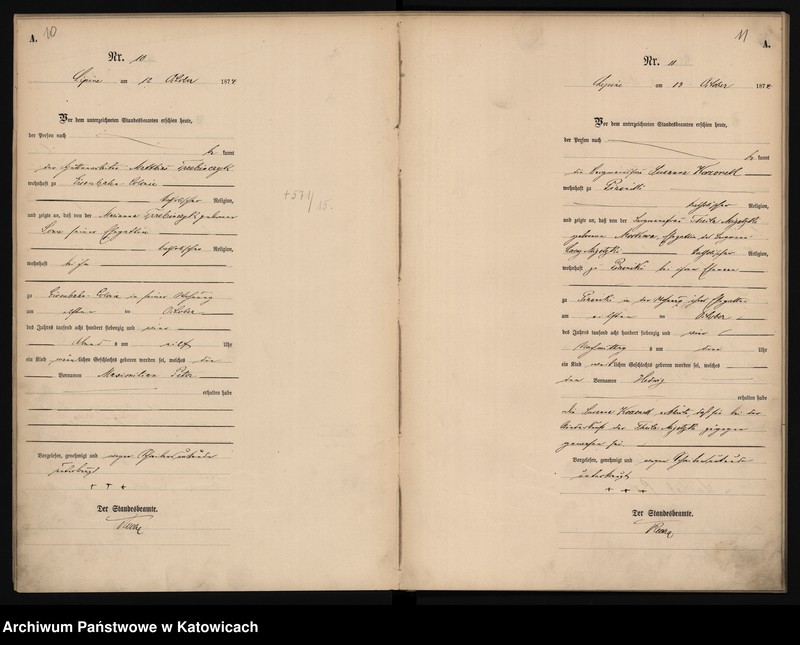 A.
10
Nr. 10
Lipine am 12 October 1874
Vor dem unterzeichneten Standesbeamten erschien heute,
der Person nach
be kannt
der Hüttenarbeiter Matthias
wohnhaft zu Eisenbahn Colonie
katholischer Religion,
und zeigte an, daß von der Marianne geborenen
seiner Ehegattin
katholischer Religion,
wohnhaft bei ihm
zu Eisenbahn-Colonie in seiner Wohnung
am elften im October
des Jahres tausend acht hundert siebenzig und vier
Abends um elf Uhr
ein Kind männlichen Geschlechts geboren worden sei, welches die
Vornamen Maximilian Peter
erhalten habe
Vorgelesen, genehmigt und wegen Schreibensunkunde
unterkreuzt
+ + +
Der Standesbeamte.
+571/
15.
11
A.
Nr. 11
Lipine am 13 October 1874
Vor dem unterzeichneten Standesbeamten erschien heute,
der Person nach
be kannt
die Bergmannsfrau Susanna
wohnhaft zu Piasniki
katholischer Religion,
und zeigte an, daß von der Bergmannsfrau Thecla
geborene Ehegattin des Bergmanns
katholischer Religion,
wohnhaft zu Piasniki bei ihrem Ehemann
zu Piasniki in der Wohnung ihres Ehegatten
am elften im October
des Jahres tausend acht hundert siebenzig und vier
Nachmittag um drei Uhr
ein Kind weiblichen Geschlechts geboren worden sei, welches
den Vornamen Hedwig
erhalten habe
Die Susanna erklärte, daß sie bei der
Niederkunft der Thecla zugegen
gewesen sei.
Vorgelesen, genehmigt und wegen Schreibensunkunde
unterkreuzt
+ + +
Der Standesbeamte.
Archiwum Państwowe w Katowicach